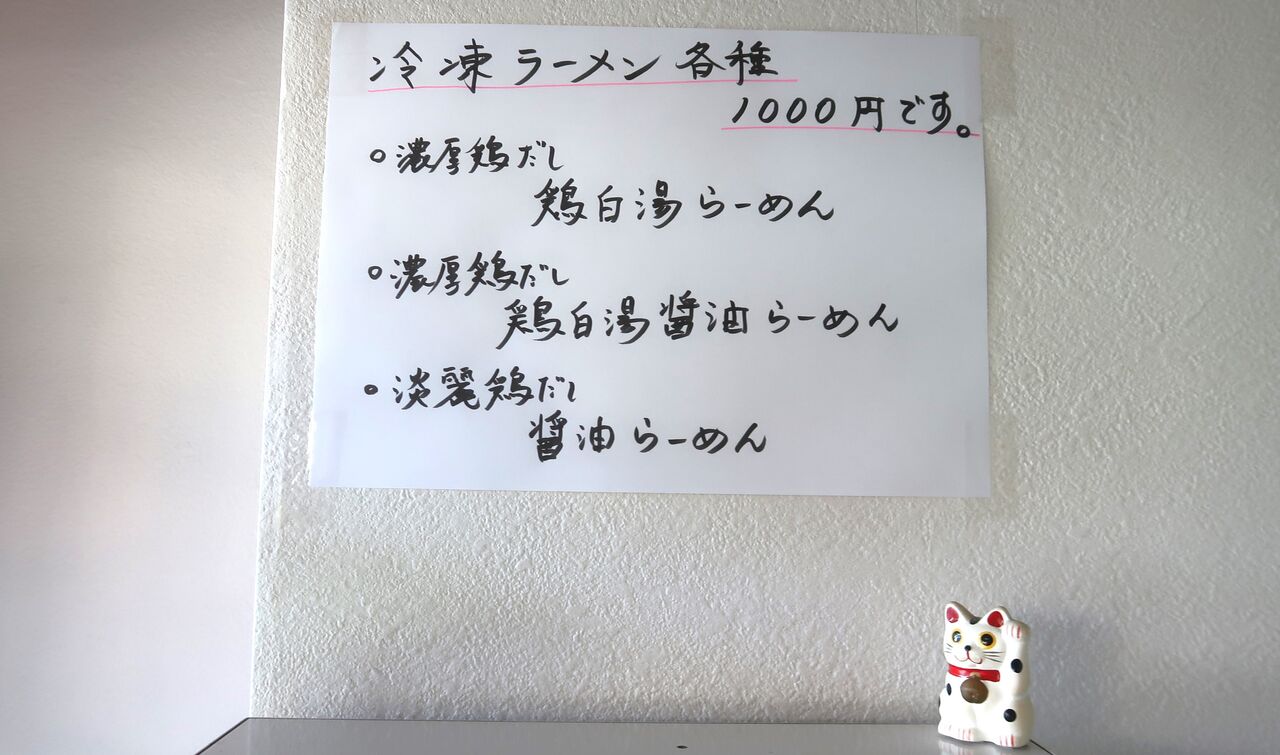 冷凍ラーメン各種
1000円です。
○濃厚鶏だし
鶏白湯らーめん
○濃厚鶏だし
鶏白湯醤油らーめん
○淡麗鶏だし
醤油らーめん